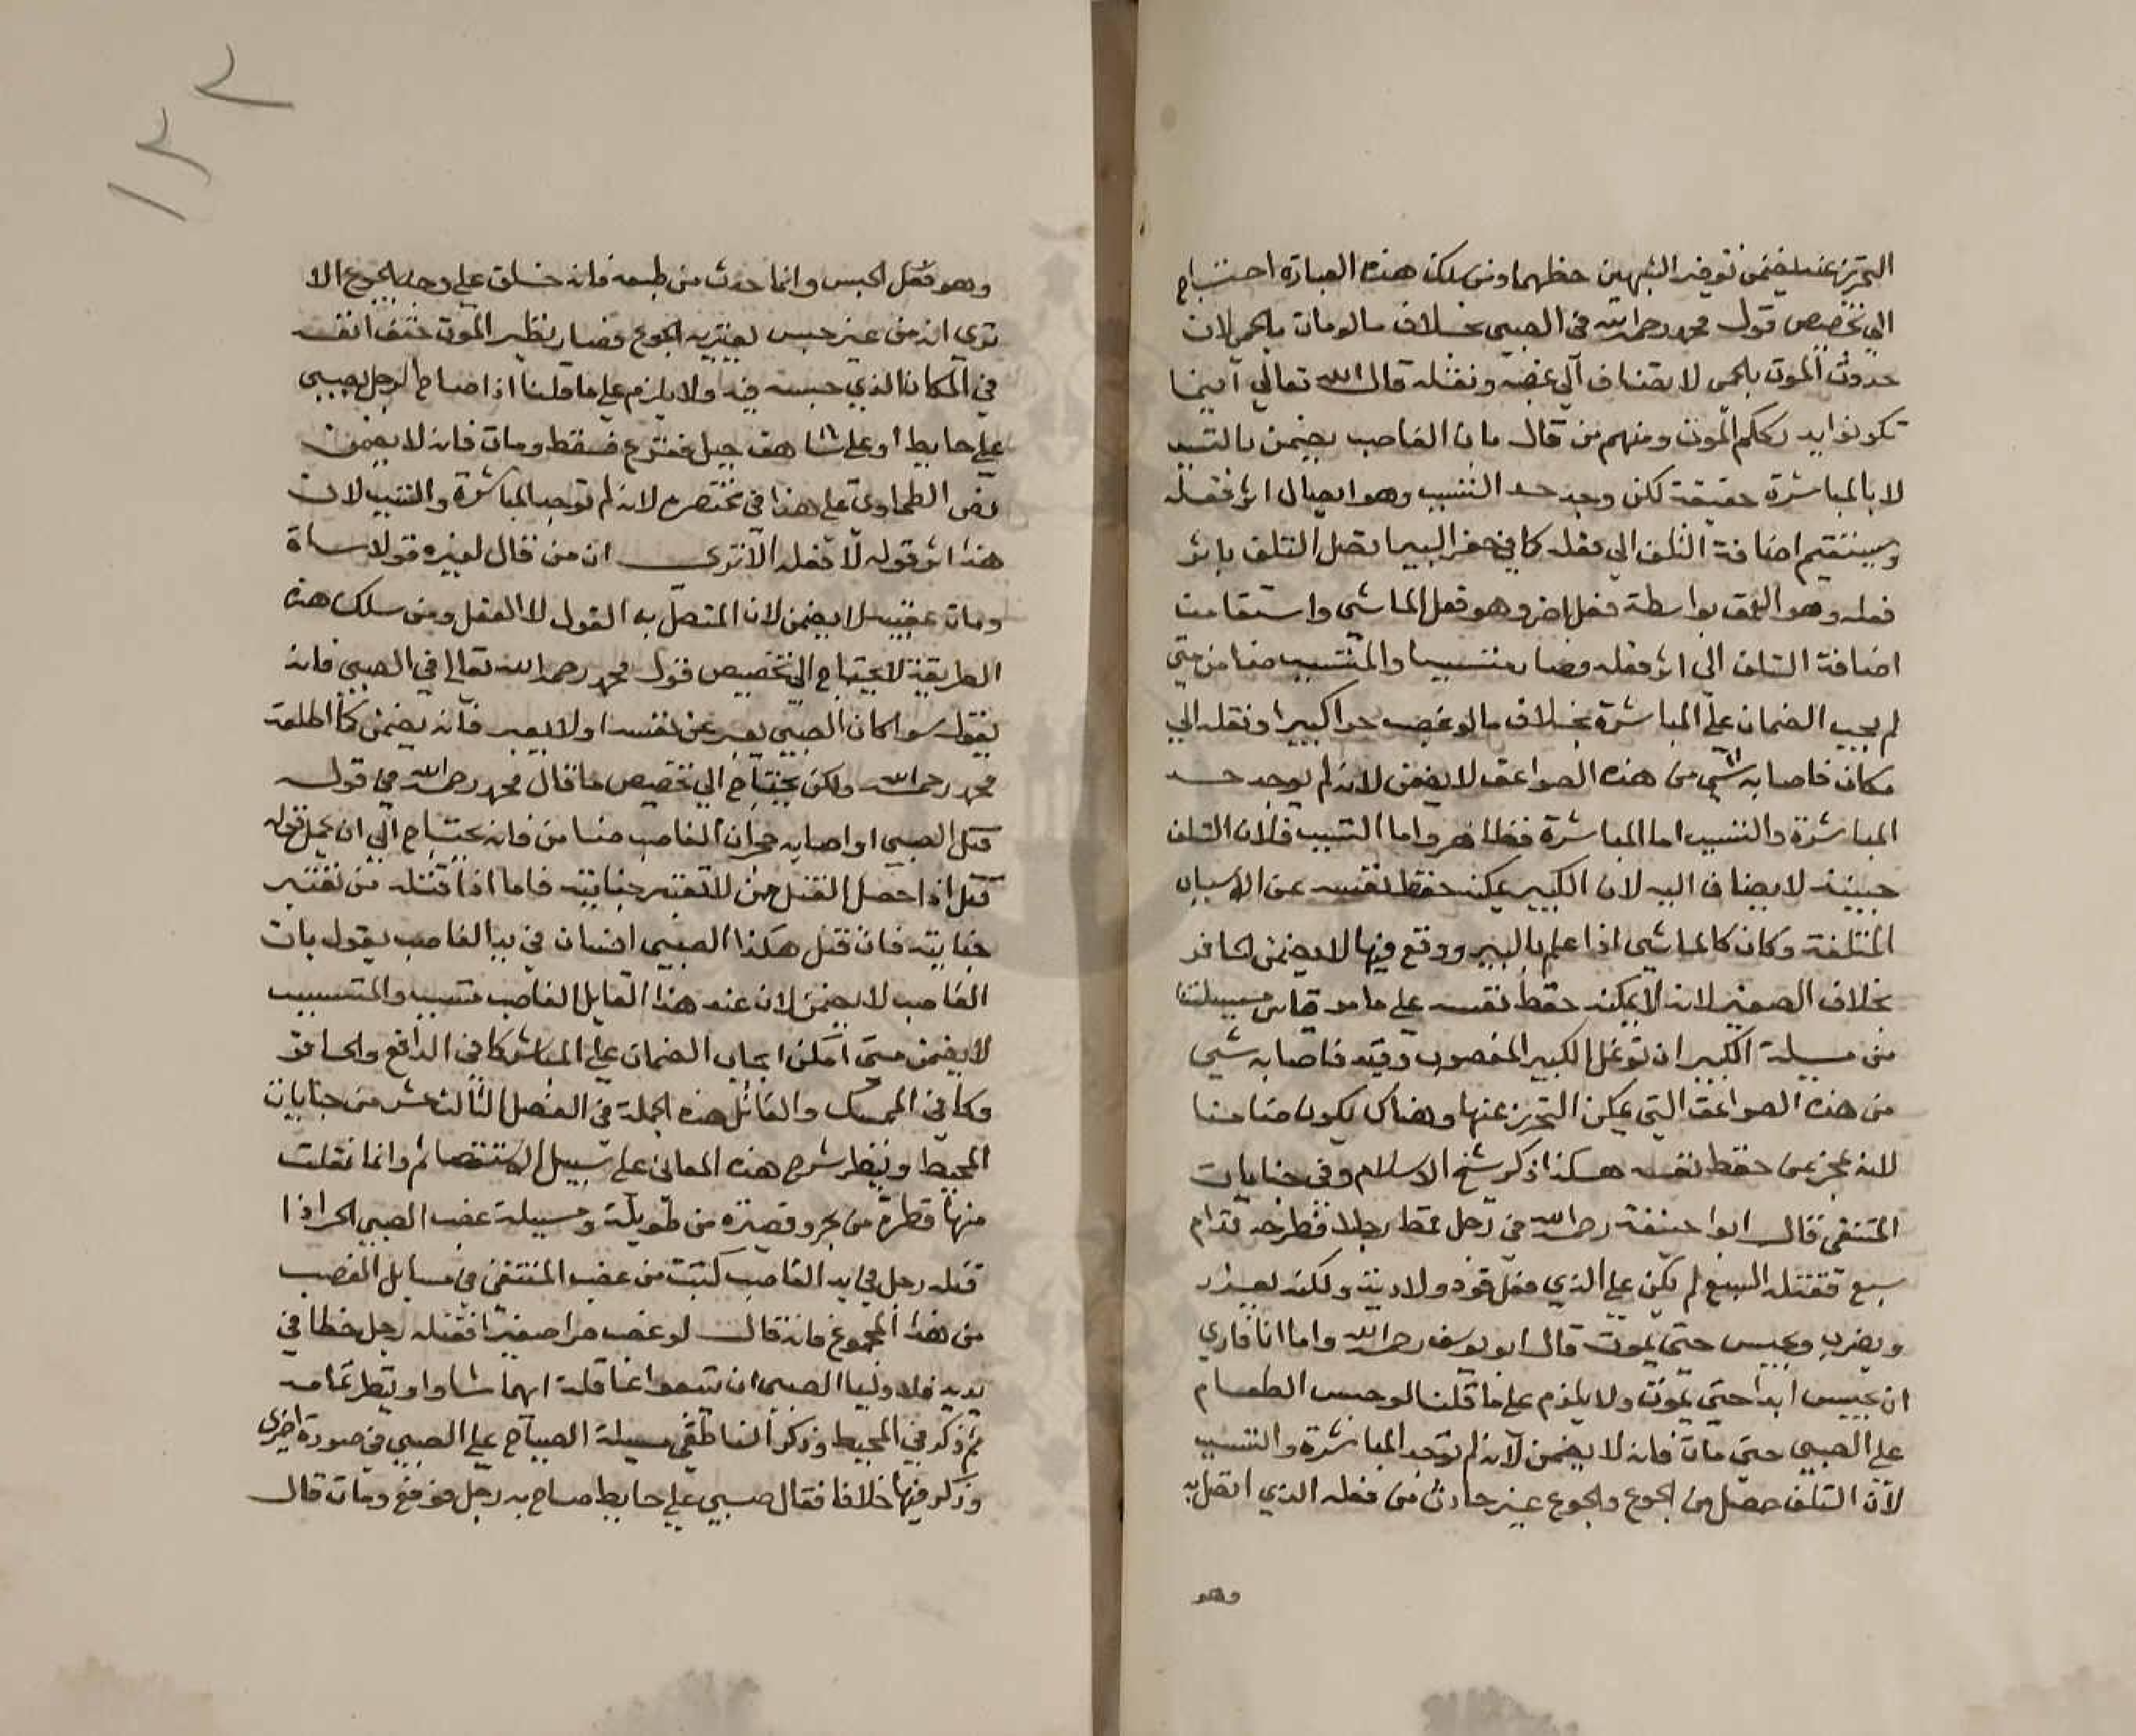 التحرز عنه يضمن توفير الشبهين حظهما ومن سلك هذه العبارة احتاج
الى تخصيص قول محمد رحمه الله في الصبي بخلاف ما لو مات بالحمى لان
حدوث الموت بالحمى لا يضاف الى غصبه ونقله قال الله تعالى اينما
تكونوا يدرككم الموت ومنهم من قال بان الغاصب يضمن بالتسبب
لا بالمباشرة حقيقة لكن وجد حد التسبب وهو ايصال اثر فعله
ويستقيم اضافة التلف الى فعله كما في حفر البير اتصل التلف باثر
فعله وهو العمق بواسطة فعل اخر وهو فعل الماشي واستقامت
اضافة التلف الى اثر فعله وصار متسببا والمتسبب ضامن متى
لم يجب الضمان على المباشرة بخلاف ما لو غصب حرا كبيرا ونقله الى
مكان فاصابه شي من هذه الصواعق لا يضمن لانه لم يوجد حد
المباشرة والتسبب اما المباشرة فظاهر واما التسبب فلان التلف
حينئذ لا يضاف اليه لان الكبير يمكنه حفظ نفسه عن الاسباب
المتلفة وكان كالماشي اذا علم بالبير ووقع فيها لا يضمن الحافر
بخلاف الصغير لانه لا يمكنه حفظ نفسه على ما مر
من مسيلة الكبير ان لو غل الكبير المغصوب وقيد فاصابه شي
من هذه الصواعق التي يمكن التحرز عنها وهناك يكون ضامنا
لانه عجز عن حفظ نفسه هكذا ذكر شيخ الاسلام وفي جنايات
المنتقى قال ابوا حنيفة رحمه الله في رجل قمط رجلا فطرحه قدام
سبع فقتله السبع لم يكن على الذي فعل قود ولا دية ولكنه يعزر
ويضرب ويحبس حتى يموت قال ابو يوسف رحمه الله واما انا فاري
ان يحبس ابدا حتى يموت ولا يلزم على ما قلنا لو حبس الطعام
على الصبي حتى مات فانه لا يضمن لانه لم يوجد المباشرة والتسبب
لان التلف حصل من الجوع والجوع غير حادث من فعله الذي اتصل به
وهو
١٣٢
وهو فعل الحبس وانما حدث من طبعه فانه خلق على وجه يجوع الا
ترى ان من غير حبس يعتريه الجوع فصار نظير الموت حتف انفه
في المكان الذي حبسه فيه ولا يلزم على ما قلنا اذا صاح الرجل بصبي
على حايط او على شاهق جبل ففزع فسقط ومات فانه لا يضمن
نص الطحاوي على هذا في مختصره لانه لم توجد المباشرة والتسبب لان
هذا اثر قوله لا فعله الا ترى ان من قال لغيره قولا ساءه
ومات عقيبه لا يضمن لان المتصل به القول لا الفعل ومن سلك هذه
الطريقة لا يحتاج الى تخصيص قول محمد رحمه الله تعالى في الصبي فانه
يقول سوا كان الصبي يعبر عن نفسه او لا يعبر فانه يضمن كما اطلقه
محمد رحمه الله ولكن يحتاج الى تخصيص ما قال محمد رحمه الله في قوله
قتل الصبي او اصابه حجر ان الغاصب ضامن فانه يحتاج الى ان يحمل قوله
قتل اذا حصل القتل ممن لا تعتبر جنايته فاما اذا قتله من تعتبر
جنايته فان قتل هكذا الصبي انسان في يد الغاصب يقول بان
الغاصب لا يضمن لان عند هذا القايل الغاصب متسبب والمتسبب
لا يضمن متى امكن ايجاب الضمان على المباشر كما في الدافع والحافر
وكما في الممسك والقاتل هذه الجملة في الفصل الثالث عشر من جنايات
المحيط وينظر شرح هذه المعاني على سبيل الاستقصا ثم وانما نقلت
منها قطرة من بحر وقصيرة من طويلة ومسيلة غصب الصبي الحر اذا
قتله رجل في يد الغاصب كتبت من غصب المنتقى في مسايل الغصب
من هذا المجموع فانه قال لو غصب حرا صغيرا فقتله رجل خطا في
يديه فلاوليا الصبي ان يتبعوا عاقلة ايهما شاوا وينظر تمامه
ثم ذكر في المحيط وذكر الناطفي مسيلة الصياح على الصبي في صورة اخرى
وذكر فيها خلافا فقال صبي على حايط صاح به رجل فوقع ومات قال